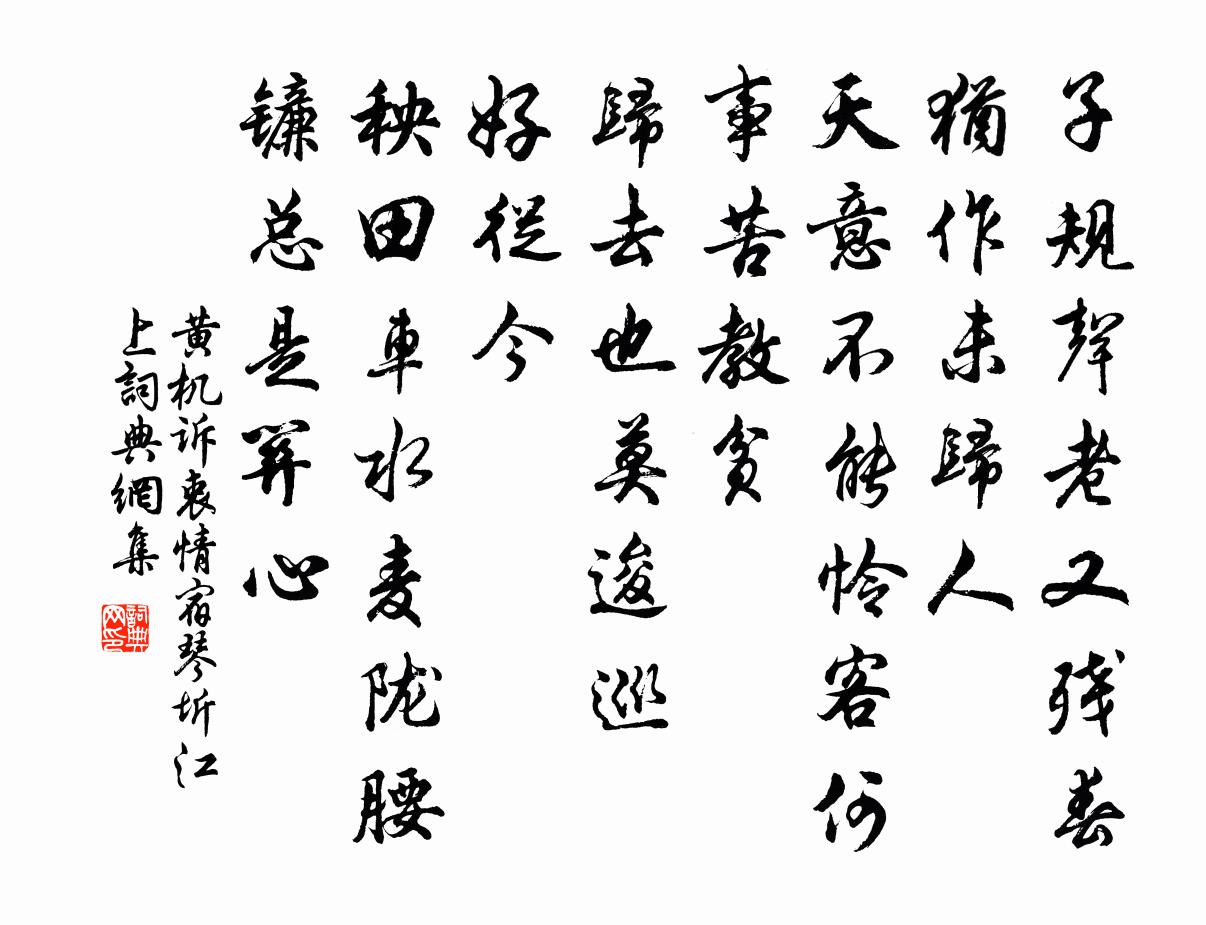 子規聲老又残春
猶作未歸人
天意不能怜客何
事苦教貧
歸去也莫逡巡
好從今
秧田車水麦陇腰
镰总是關心
黄机诉衷情宿琴圻江
上詞典網集
詞典
网印